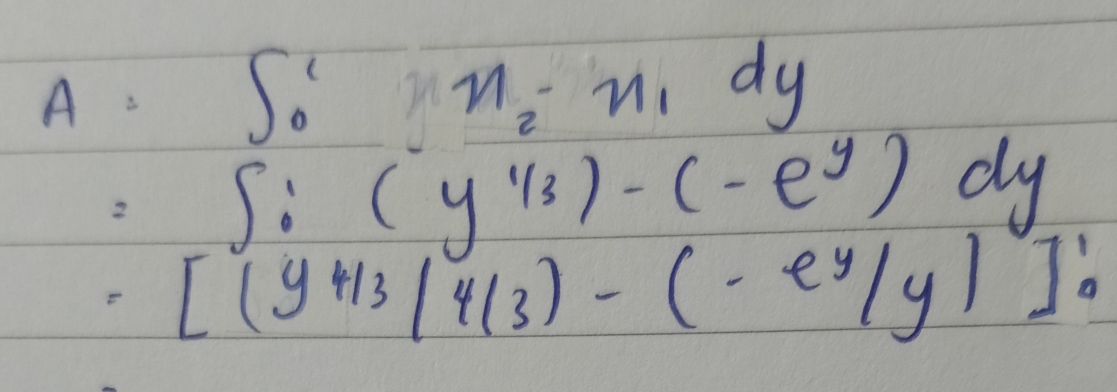 A = ∫₀¹ x₂ - x₁ dy
= ∫₀¹ (y^1/3) - (-e^y) dy
= [(y^4/3 / 4/3) - (-e^y/y)]₀¹